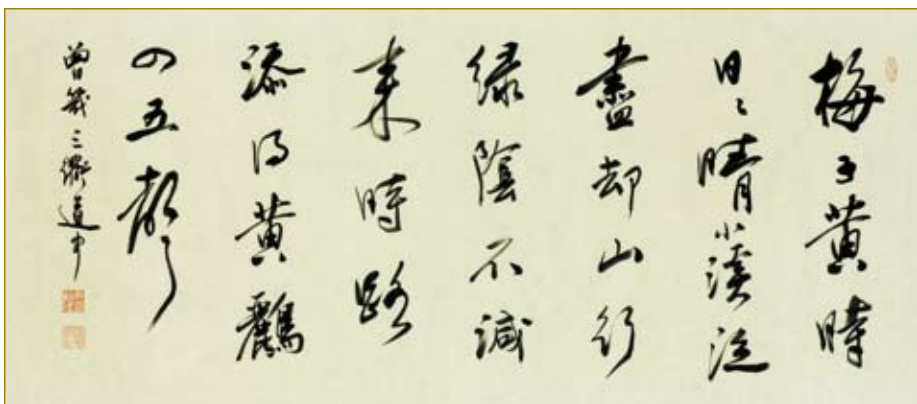 梅子黄時
日〻晴小溪泛
盡却山行
緑陰不減
来時路
添得黄鸝
四五聲
曾幾三衢道中